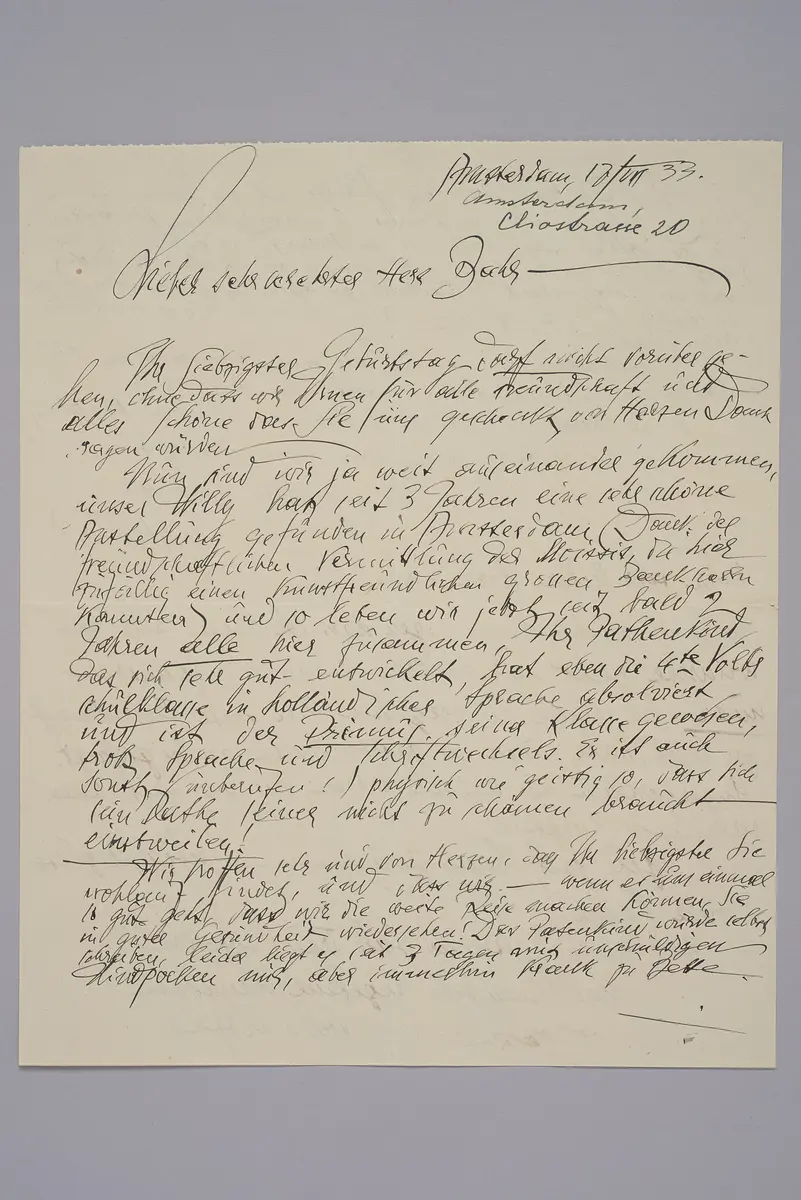 Amsterdam, 17/VII 33.
Amsterdam,
Cliostrasse 20
Lieber sehr verehrter Herr Bahr
Ihr siebzigster Geburtstag darf nicht vorüber ge-
hen, ohne dass wir Ihnen für alle Freundschaft und
alles Schöne das Sie uns geschenkt, von Herzen Dank
sagen würden
Nun sind wir ja weit auseinander gekommen,
unser Willy hat seit 3 Jahren eine sehr schöne
Anstellung gefunden in Amsterdam (Dank der
freundschaftlichen Vermittlung der Moissis, die hier
zufällig einen kunstfreundlichen grossen
kannten) und so leben wir jetzt seit bald 2
Jahren alle hier zusammen. Ihr Pathenkind,
das sich sehr gut entwickelt, hat eben die 4te Volks
schulklasse in holländischer Sprache absolviert
und ist der Primus seiner Klasse gewesen,
trotz Sprache und Schriftwechsels. Er ist auch
sonst (unberufen!) physisch wie geistig so, dass sich
sein Pathe seiner nicht zu schämen braucht
einstweilen!
Wir hoffen sehr und von Herzen, dass Ihr Siebzigster Sie
wohlauf findet, und dass wir – wenn es uns einmal
so gut geht, dass wir die weite Reise machen können, Sie
in guter Gesundheit wiedersehen! Das Patenkind würde selbst
schreiben, leider liegt es seit 3 Tagen mit unschuldigen
Windpocken nur, aber immerhin krank zu Bette.